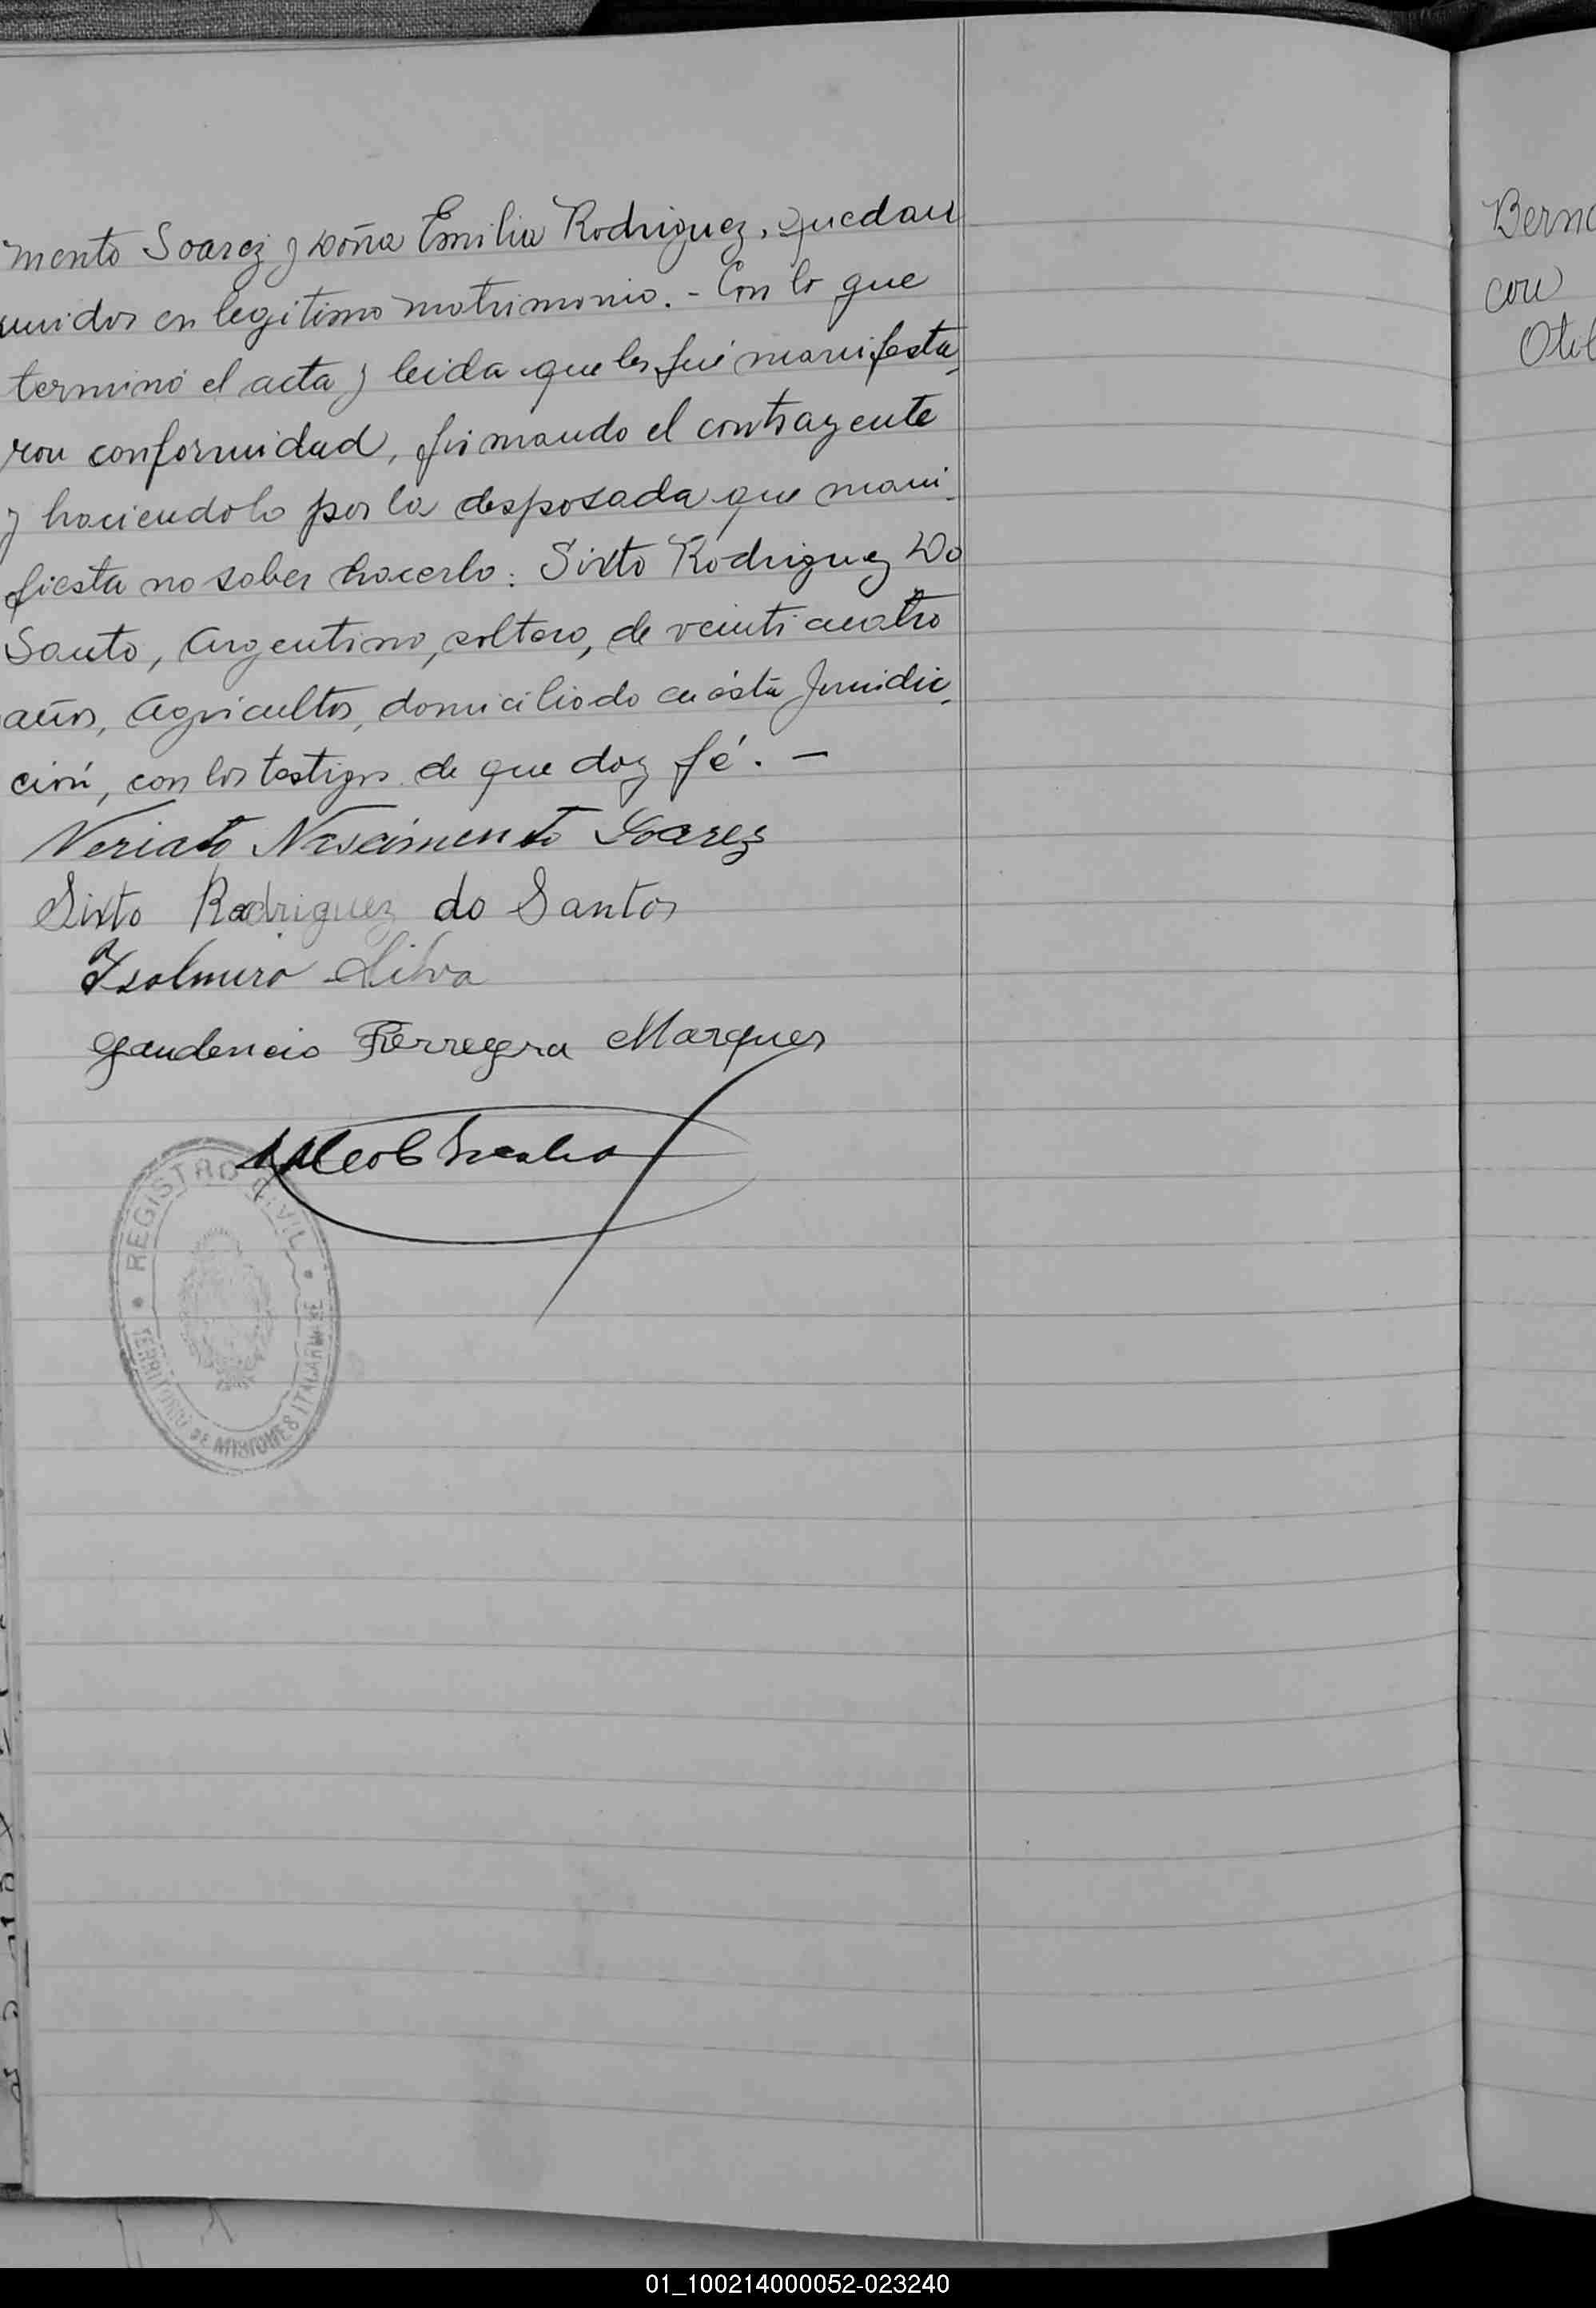 mento Soarez y Doña Emilia Rodriguez, quedan
unidos en legitimo matrimonio. - Con lo que
terminó el acta y leida que les fué manifesta-
ron conformidad, firmando el contrayente
y haciendolo por la desposada que mani-
fiesta no saber hacerlo: Sixto Rodriguez Do
Santo, Argentino, soltero, de veinticuatro
años, Agricultor, domiciliado en ésta Juridic-
ción, con los testigos de que doy fé. —
Veriato Nascimento Soarez
Sixto Rodriguez do Santos
Isolmiro Silva
Gaudencio Ferreyra Marques
REGISTRO CIVIL
TERRITORIO DE MISIONES ITACARUARE
Berna
con
Otil
01_100214000052-023240